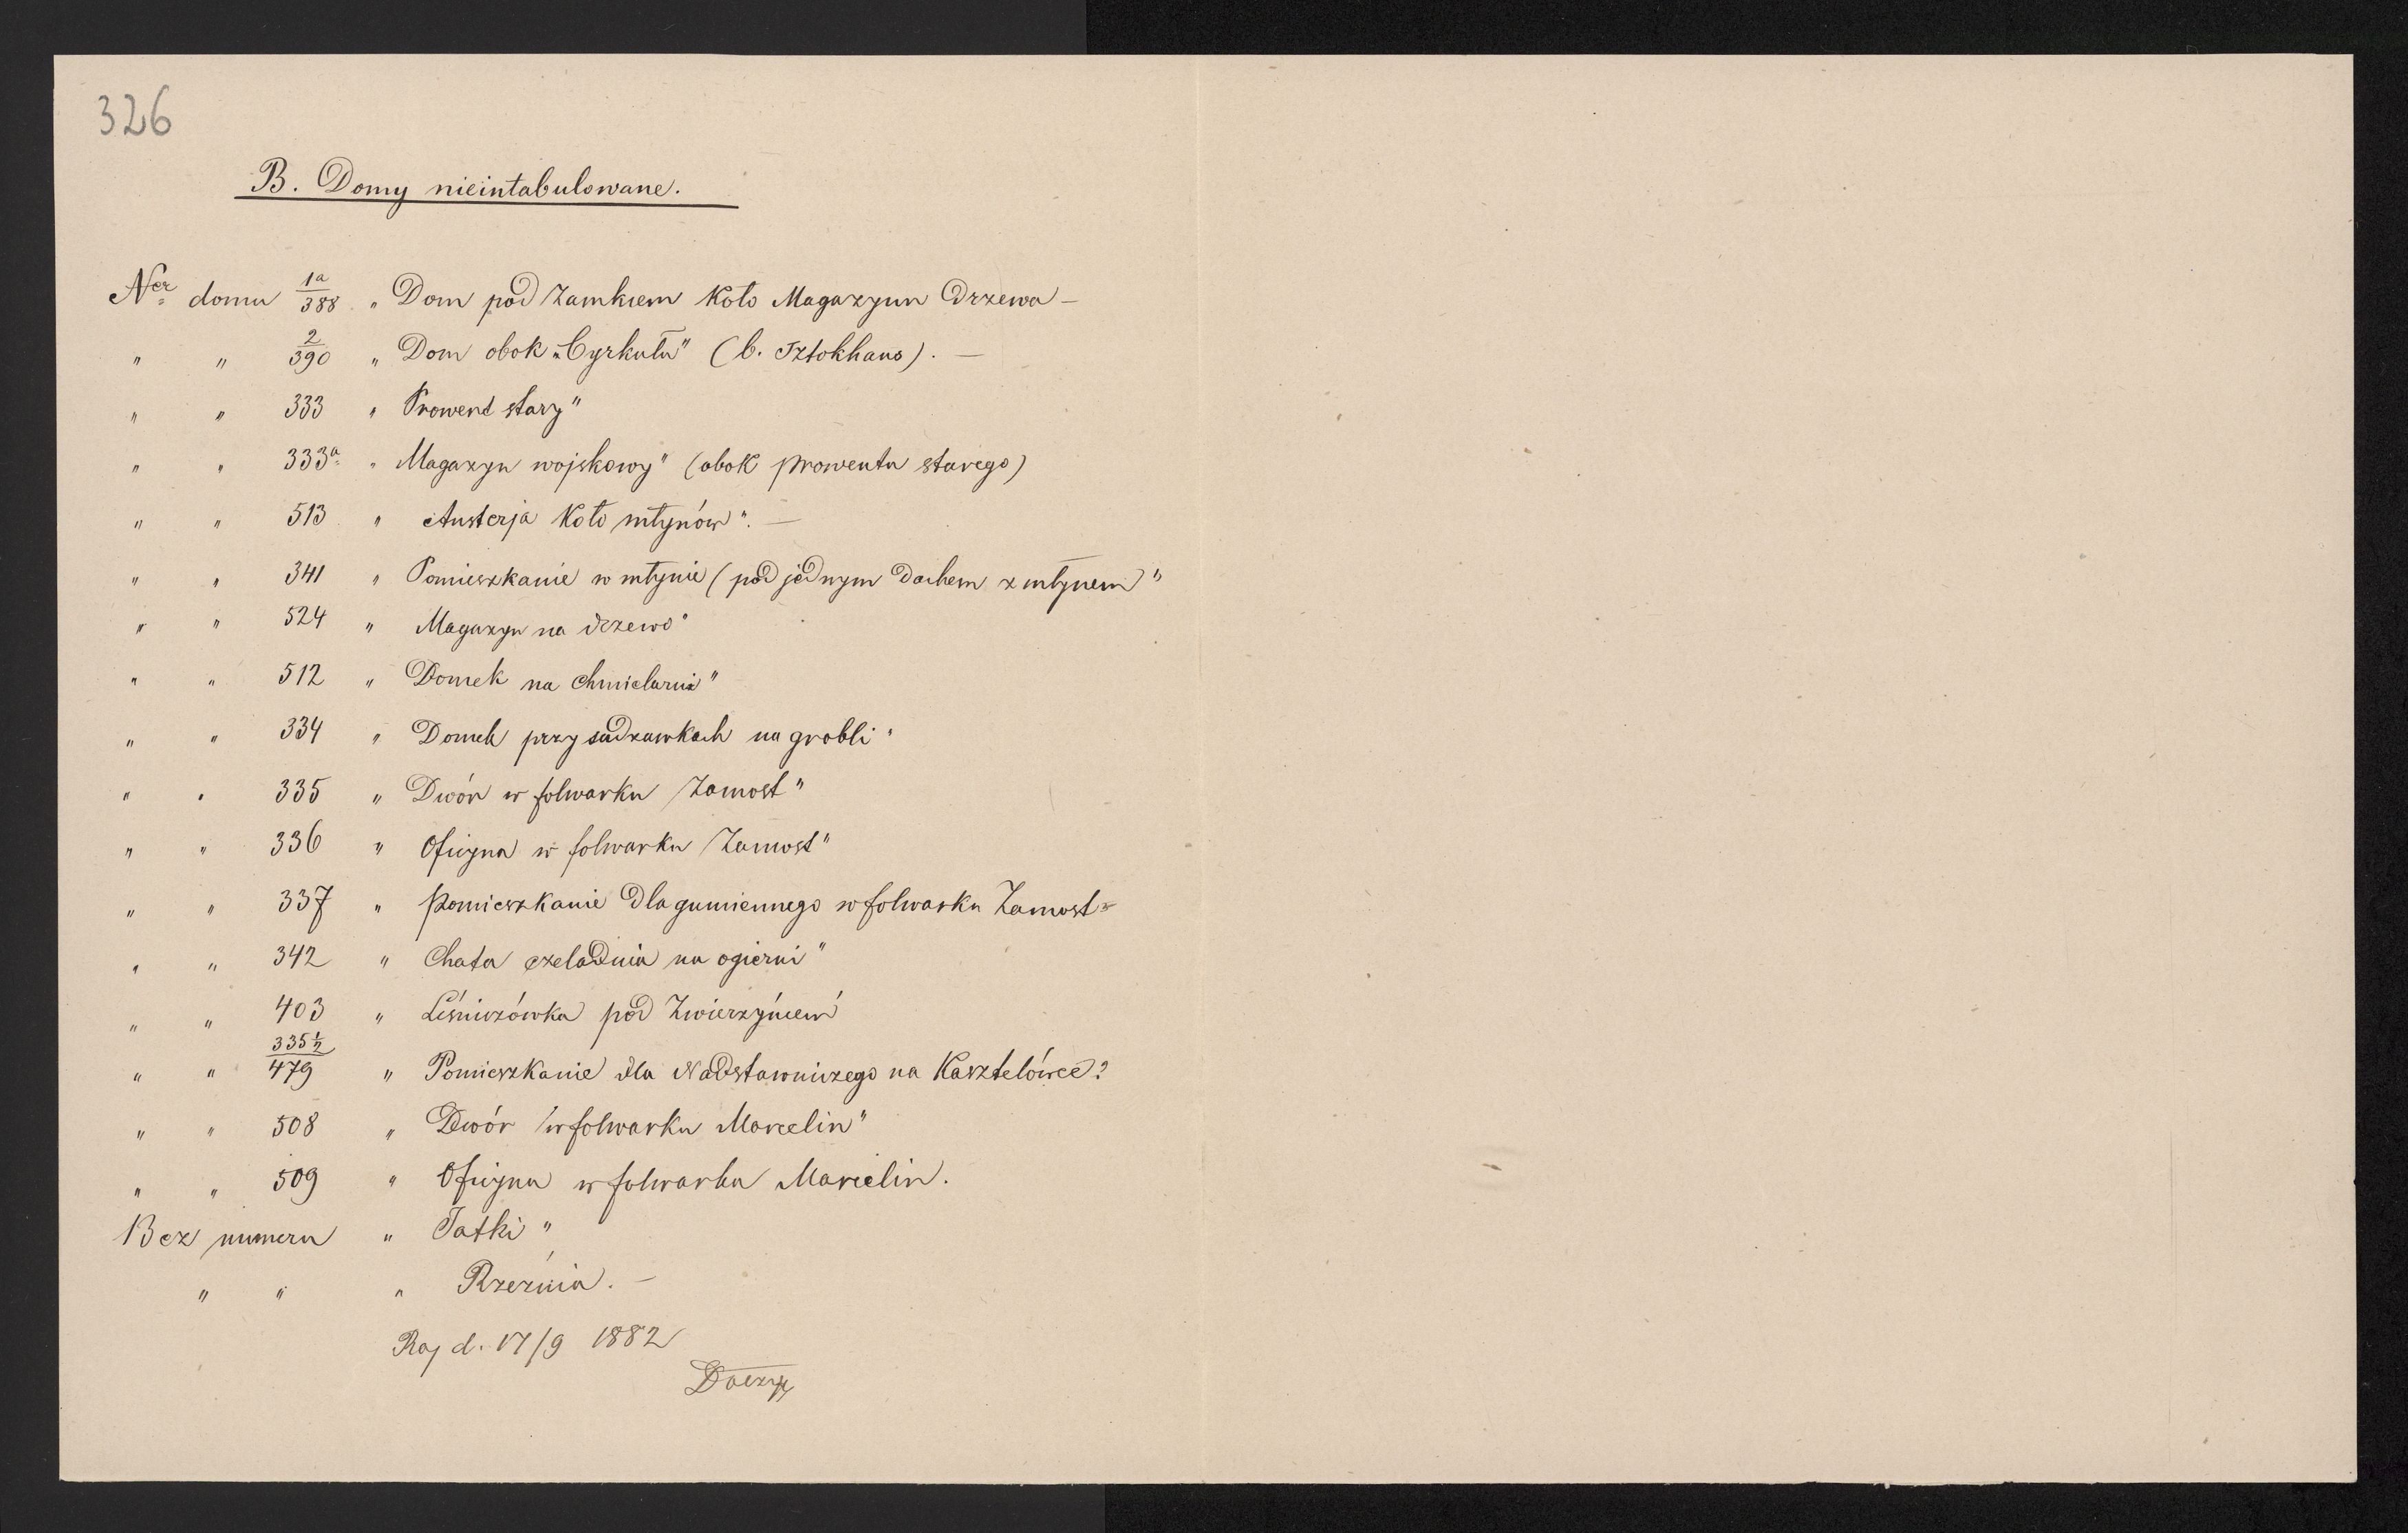 326
B. Domy nieintabulowane.
Ner domu 1a/388 „ Dom pod Zamkiem koło Magazynu drzewa –
" " 2/390 „ Dom obok „Cyrkułu" (b. Sztokhaus). –
" " 333 „ Prowent stary"
" " 333a „ Magazyn wojskowy" (obok prowentu starego)
" " 513 „ Austerja koło młynów". –
" " 341 „ Pomieszkanie w młynie (pod jednym dachem z młynem)"
" " 524 „ Magazyn na drzewo"
" " 512 „ Domek na Chmielarni"
" " 334 „ Domek przy sadzawkach na grobli"
" " 335 „ Dwór w folwarku Zamost"
" " 336 „ Oficyna w folwarku Zamost"
" " 337 „ Pomieszkanie dla gumiennego w folwarku Zamost"
" " 342 „ Chata czeladnia na ogierni"
" " 403 „ Leśniczówka pod Zwierzyńcem
" " 335½/479 „ Pomieszkanie dla Nadstawniczego na Kasztelówce?
" " 508 „ Dwór w folwarku Marcelin"
" " 509 „ Oficyna w folwarku Marcelin.
Bez numeru „ Jatki"
" " „ Rzeźnia. –
Raj d. 17/9 1882